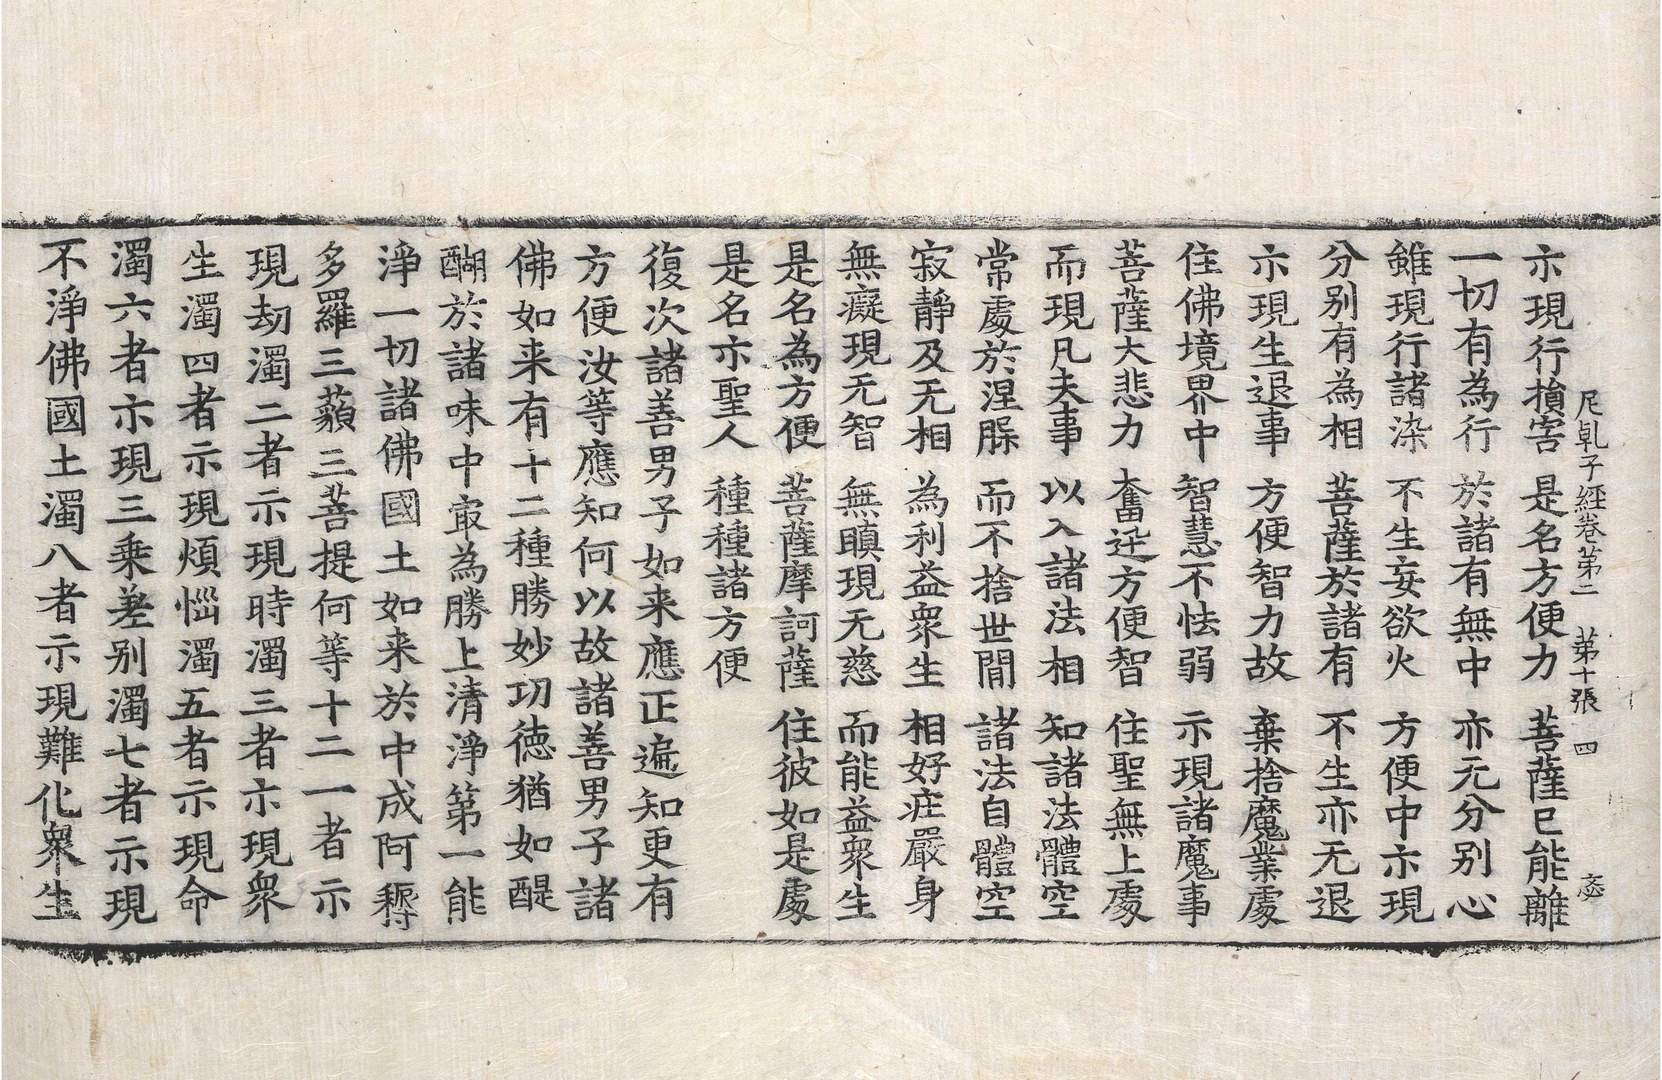 尼乹子經卷第二　第十張　四　宓
尒現行損害　是名方便力　菩薩已能離
一切有為行　於諸有無中　亦无分別心
雖現行諸染　不生妄欲火　方便中尒現
分別有為相　菩薩於諸有　不生亦无退
尒現生退事　方便智力故　棄捨魔業處
住佛境界中　智慧不怯弱　示現諸魔事
菩薩大悲力　奮迅方便智　住聖無上處
而現凡夫事　以入諸法相　知諸法體空
常處於涅槃　而不捨世間　諸法自體空
寂靜及无相　為利益衆生　相好庄嚴身
無癡現无智　無瞋現无慈　而能益衆生
是名為方便　菩薩摩訶薩　住彼如是處
是名尒聖人　種種諸方便
復次諸善男子如来應正遍知更有
方便汝等應知何以故諸善男子諸
佛如来有十二種勝妙功徳猶如醍
醐於諸味中㝡為勝上清淨第一能
淨一切諸佛國土如来於中成阿耨
多羅三藐三菩提何等十二一者示
現劫濁二者示現時濁三者尒現衆
生濁四者示現煩惱濁五者示現命
濁六者尒現三乘差别濁七者示現
不淨佛國土濁八者示現難化衆生